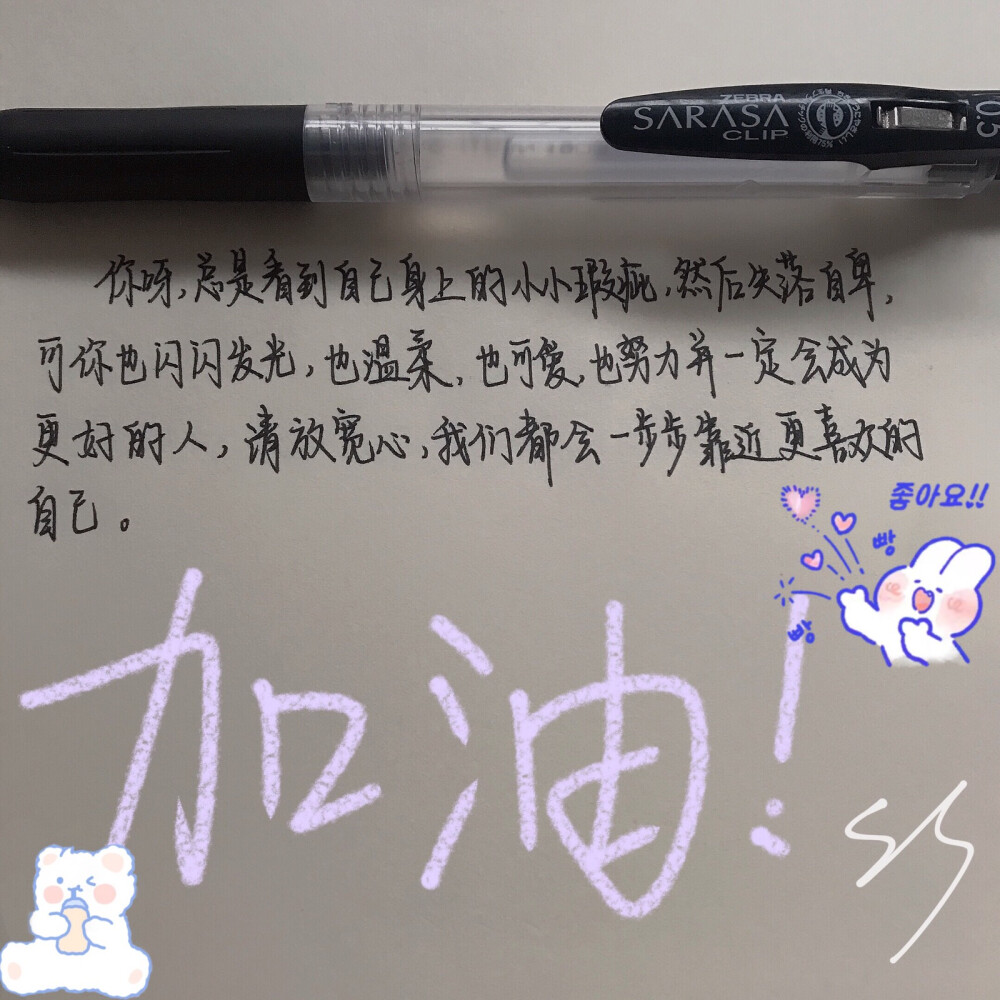 ZEBRA
SARASA
CLIP
0.5
你呀,总是看到自己身上的小小瑕疵,然后失落自卑,
可你也闪闪发光,也温柔,也可爱,也努力并一定会成为
更好的人,请放宽心,我们都会一步步靠近更喜欢的
自己。
좋아요!!
빵
빵
加油!